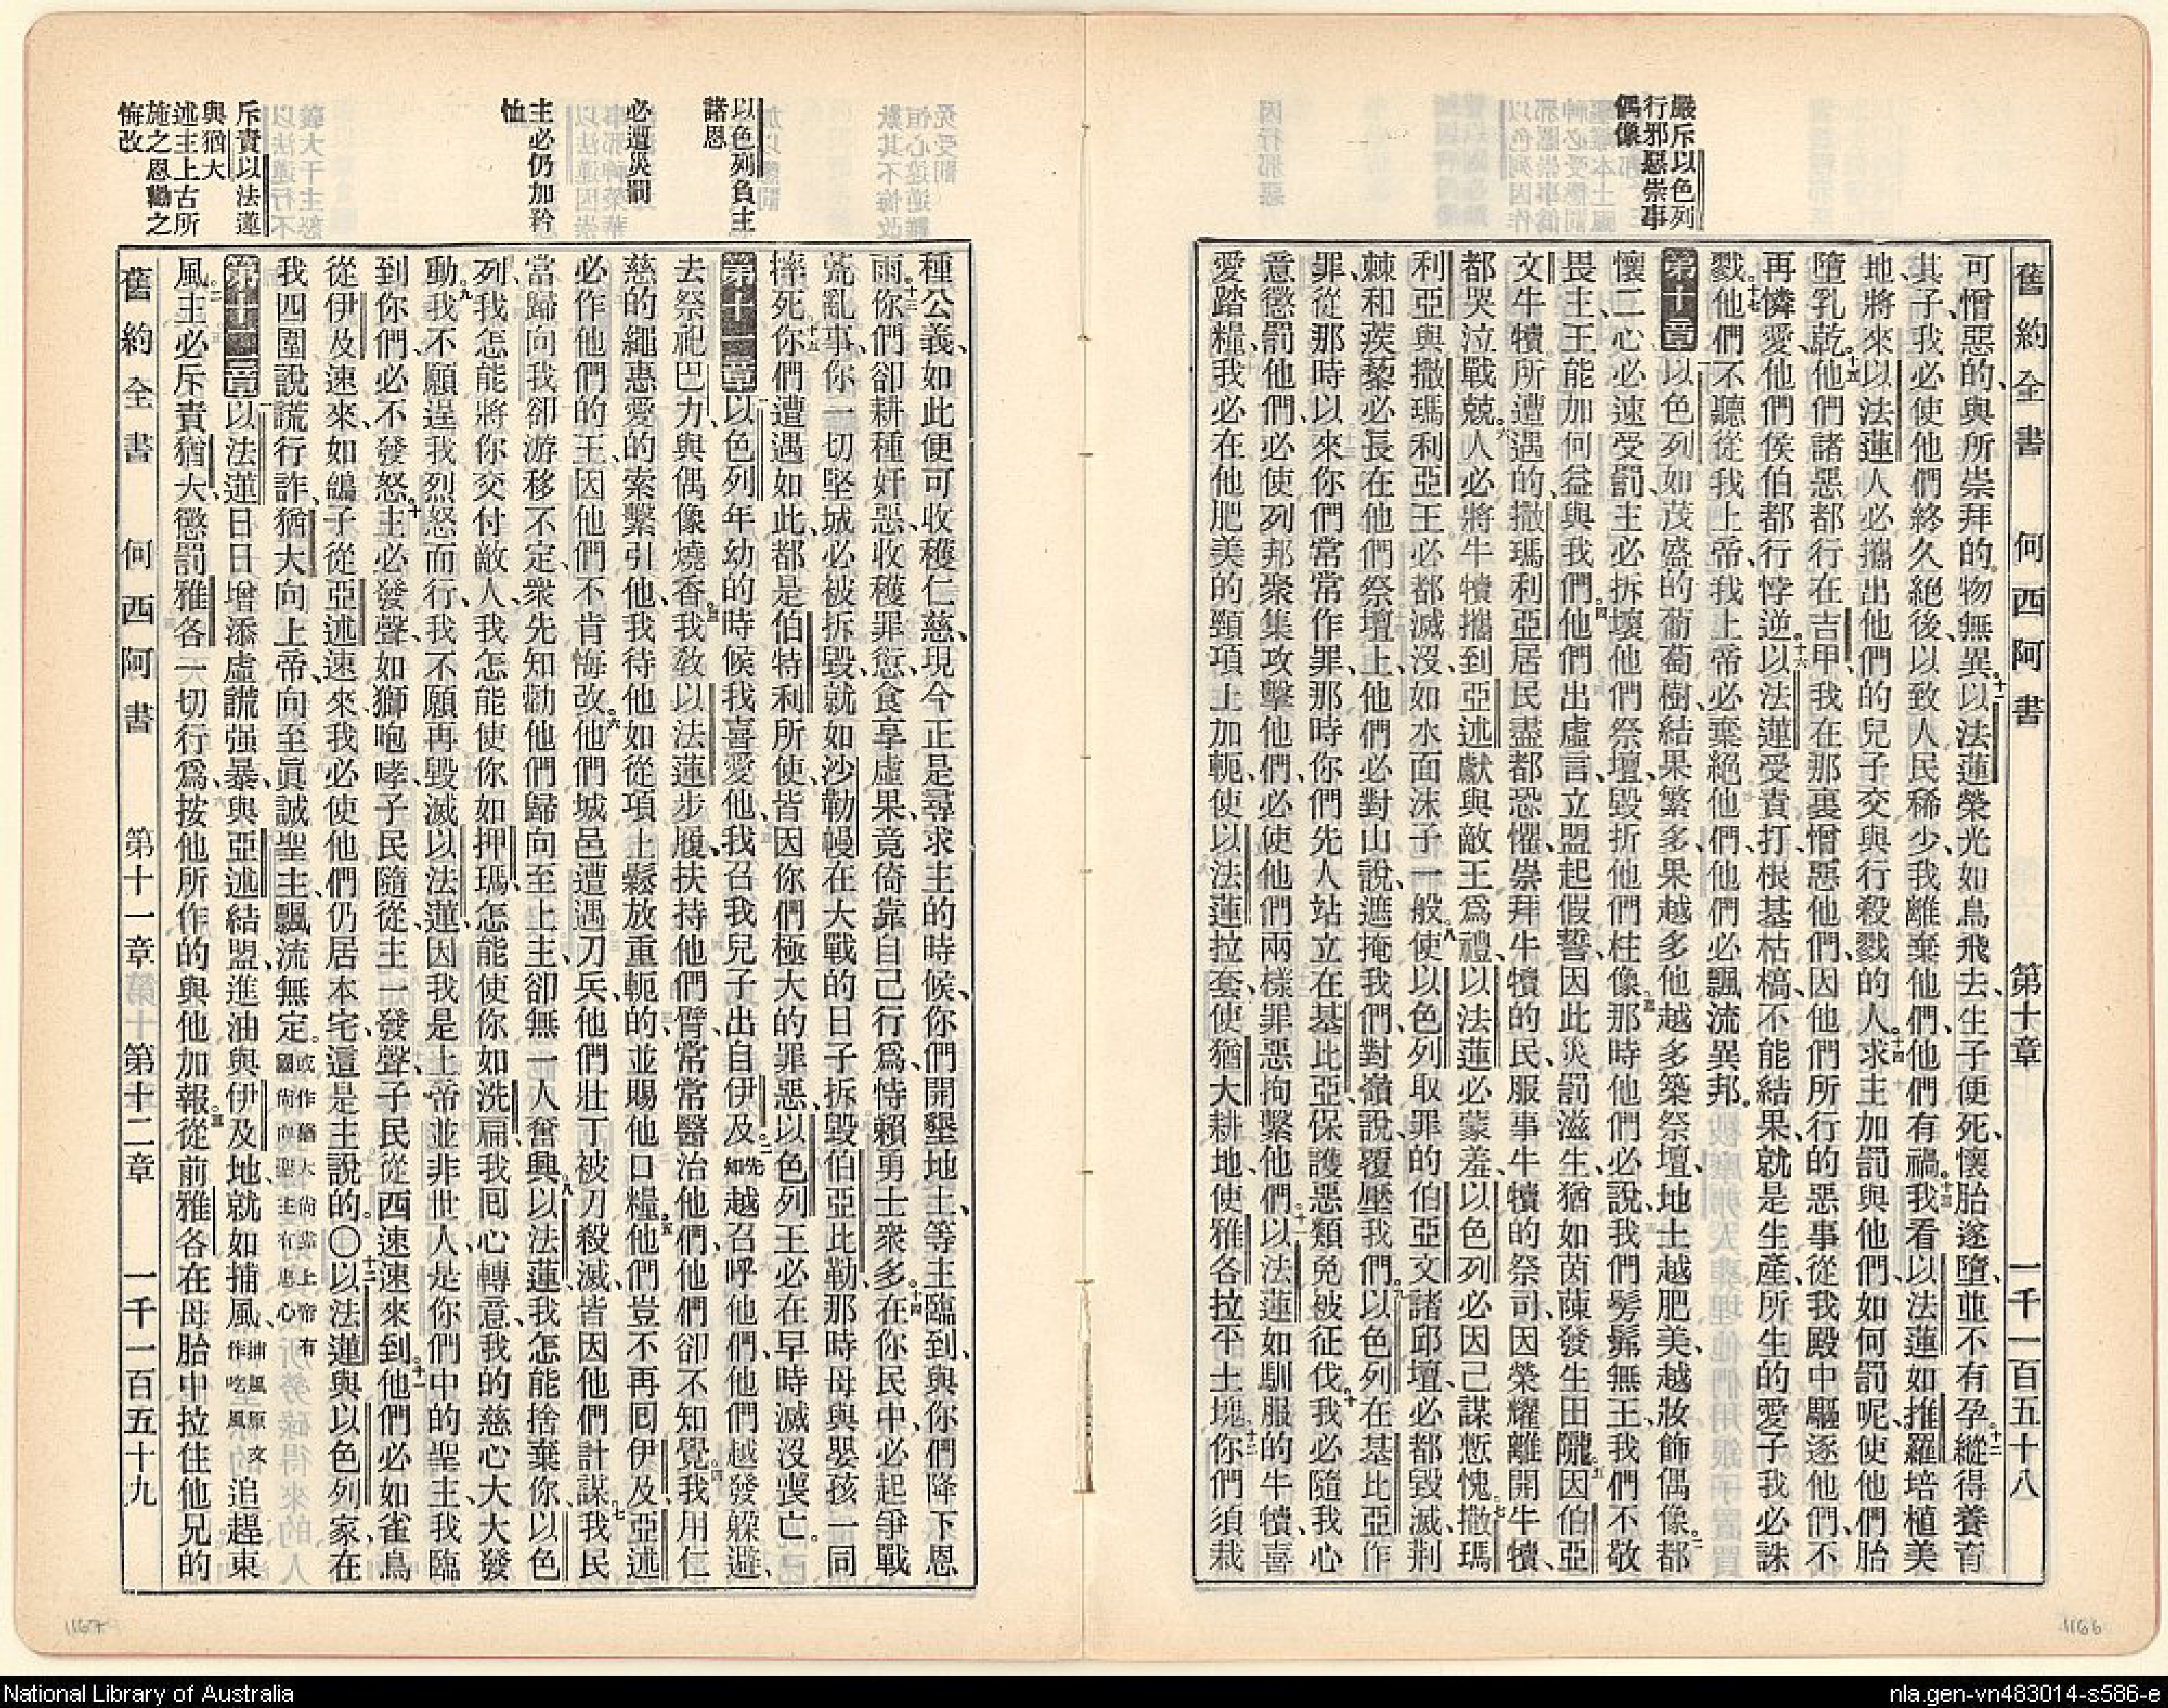 舊約全書 何西阿書 第十章 一千一百五十八
嚴斥以色列
行邪惡崇事
偶像
可憎惡的、與所崇拜的物無異。十一以法蓮榮光如鳥飛去、生子便死、懷胎遂墮、並不有孕、十二縱得養育
其子、我必使他們終久絕後、以致人民稀少、我離棄他們、他們有禍。十三我看以法蓮如推羅培植美
地、將來以法蓮人必攜出他們的兒子交與行殺戮的人。十四求主加罰與他們、如何罰呢、使他們胎
墮乳乾。十五他們諸惡都行在吉甲、我在那裏憎惡他們、因他們所行的惡事從我殿中驅逐他們、不
再憐愛他們、侯伯都行悖逆。十六以法蓮受責打、根基枯槁、不能結果、就是生產、所生的愛子我必誅
戮。十七他們不聽從我上帝、我上帝必棄絕他們、他們必飄流異邦。
第十章 以色列如茂盛的葡萄樹、結果繁多、果越多、他越多築祭壇、地土越肥美、越妝飾偶像。二都
懷二心、必速受罰、主必拆壞他們祭壇、毀折他們柱像。三那時他們必說、我們髣髴無王、我們不敬
畏主、王能加何益與我們。四他們出虛言、立盟起假誓、因此災罰滋生、猶如茵蔯發生田隴。五因伯亞
文牛犢所遭遇的、撒瑪利亞居民盡都恐懼、崇拜牛犢的民、服事牛犢的祭司、因榮耀離開牛犢、
都哭泣戰兢。六人必將牛犢攜到亞述獻與敵王爲禮、以法蓮必蒙羞、以色列必因己謀慙愧。七撒瑪
利亞與撒瑪利亞王、必都滅沒、如水面沫子一般。八使以色列取罪的伯亞文諸邱壇、必都毀滅、荆
棘和蒺藜必長在他們祭壇上、他們必對山說、遮掩我們、對嶺說、覆壓我們。九以色列在基比亞作
罪、從那時以來你們常常作罪、那時你們先人站立在基比亞、保護惡類免被征伐。十我必隨我心
意懲罰他們、必使列邦聚集攻擊他們、必使他們兩樣罪惡拘繫他們。十一以法蓮如馴服的牛犢、喜
愛踏糧、我必在他肥美的頸項上加軛、使以法蓮拉套、使猶大耕地、使雅各拉平土塊。十二你們須栽
以色列負主
諸恩
必遭災罰
主必仍加矜
恤
斥責以法蓮
與猶大
述主上古所
施之恩勸之
悔改
種公義、如此便可收穫仁慈、現今正是尋求主的時候、你們開墾地土、等主臨到、與你們降下恩
雨。十三你們卻耕種奸惡、收穫罪愆、食享虛果、竟倚靠自己行爲、恃賴勇士衆多。十四在你民中、必起爭戰
荒亂事、你一切堅城必被拆毀、就如沙勒幔在大戰的日子拆毀伯亞比勒、那時母與嬰孩一同
摔死。十五你們遭遇如此、都是伯特利所使、皆因你們極大的罪惡、以色列王必在早時滅沒喪亡。
第十一章 以色列年幼的時候、我喜愛他、我召我兒子出自伊及。二先知越召呼他們、他們越發躱避、
去祭祀巴力、與偶像燒香。三我教以法蓮步履、扶持他們臂、常常醫治他們、他們卻不知覺。四我用仁
慈的繩惠愛的索繫引他、我待他如從項上鬆放重軛的、並賜他口糧。五他們豈不再囘伊及、亞述
必作他們的王、因他們不肯悔改。六他們城邑遭遇刀兵、他們壯丁被刀殺滅、皆因他們計謀。七我民
當歸向我、卻游移不定、衆先知勸他們歸向至上主、卻無一人奮興。八以法蓮我怎能捨棄你、以色
列我怎能將你交付敵人、我怎能使你如押瑪、怎能使你如洗扁、我囘心轉意、我的慈心大大發
動。九我不願逞我烈怒而行、我不願再毀滅以法蓮、因我是上帝、並非世人、是你們中的聖主、我臨
到你們、必不發怒。十主必發聲如獅咆哮、子民隨從主、一發聲、子民從西速速來到。十一他們必如雀鳥
從伊及速來、如鴿子從亞述速來、我必使他們仍居本宅、這是主說的。〇十二以法蓮與以色列家、在
我四圍說謊行詐、猶大向上帝、向至眞誠聖主、飄流無定。或作猶大尚靠上帝有國尚向聖主有忠心
第十二章 以法蓮日日增添虛謊强暴、與亞述結盟、進油與伊及地、就如捕風、捕風原文作吃風追趕東
風。二主必斥責猶大、懲罰雅各、一切行爲、按他所作的與他加報。三從前雅各在母胎中拉住他兄的
舊約全書 何西阿書 第十一章 第十二章 一千一百五十九
1167
1166
National Library of Australia
nla.gen-vn483014-s586-e